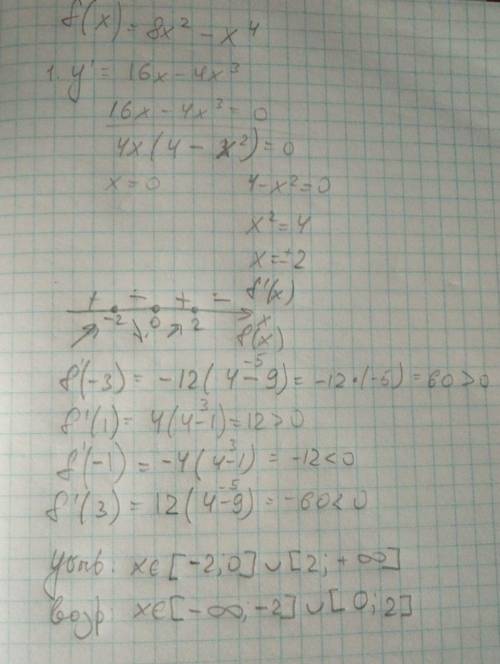 f(x) = 8x² - x⁴
1. y' = 16x - 4x³
16x - 4x³ = 0
4x(4 - x²) = 0
x = 0 4 - x² = 0
x² = 4
x = ±2
+ - + - f'(x)
-2 0 2 x
f(x)
f'(-3) = -12(4 - 9) = -12·(-5) = 60 > 0
-5
f'(1) = 4(4-1) = 12 > 0
3
f'(-1) = -4(4-1) = -12 < 0
3
f'(3) = 12(4-9) = -60 < 0
-5
убыв: x∈[-2;0]∪[2;+∞]
возр: x∈[-∞,-2]∪[0;2]